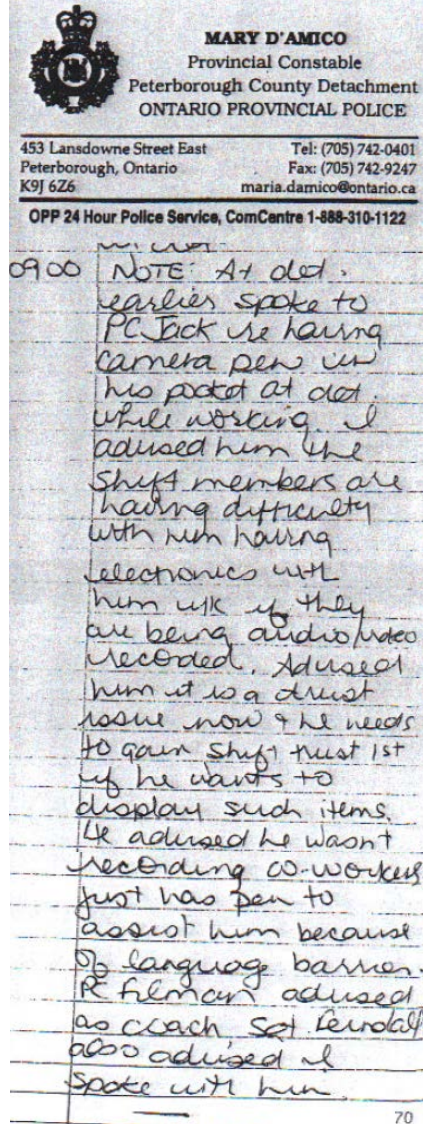 MARY D'AMICO
Provincial Constable
Peterborough County Detachment
ONTARIO PROVINCIAL POLICE
453 Lansdowne Street East Tel: (705) 742-0401
Peterborough, Ontario Fax: (705) 742-9247
K9J 6Z6 maria.damico@ontario.ca
OPP 24 Hour Police Service, ComCentre 1-888-310-1122
0900 NOTE: At det.
earlier spoke to
PC Jack re having
camera pen in
his pocket at det.
while working. I
advised him the
shift members are
having difficulty
with him having
electronics with
him u/k if they
are being audio/video
recorded. Advised
him it is a trust
issue now & he needs
to gain shift trust 1st
if he wants to
display such items.
He advised he wasn't
recording co-workers
just has pen to
assist him because
of language barrier.
PC Filman advised
as coach Sgt
also advised I
spoke with him.
70